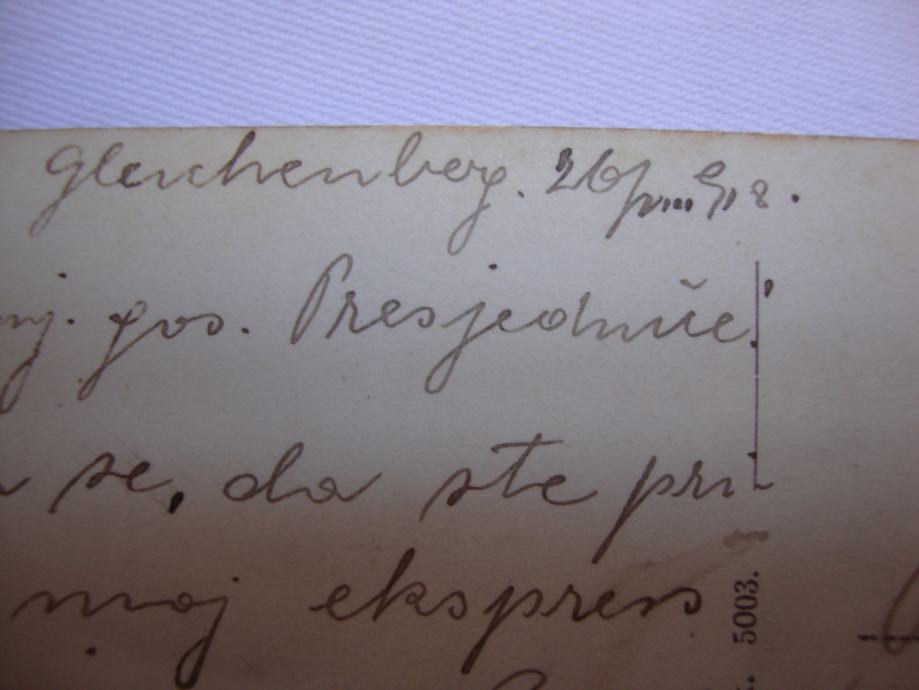 Gleichenberg. 26/VIII 912.
gos. Presjedniče!
se, da ste pri-
moj ekspress
5003.